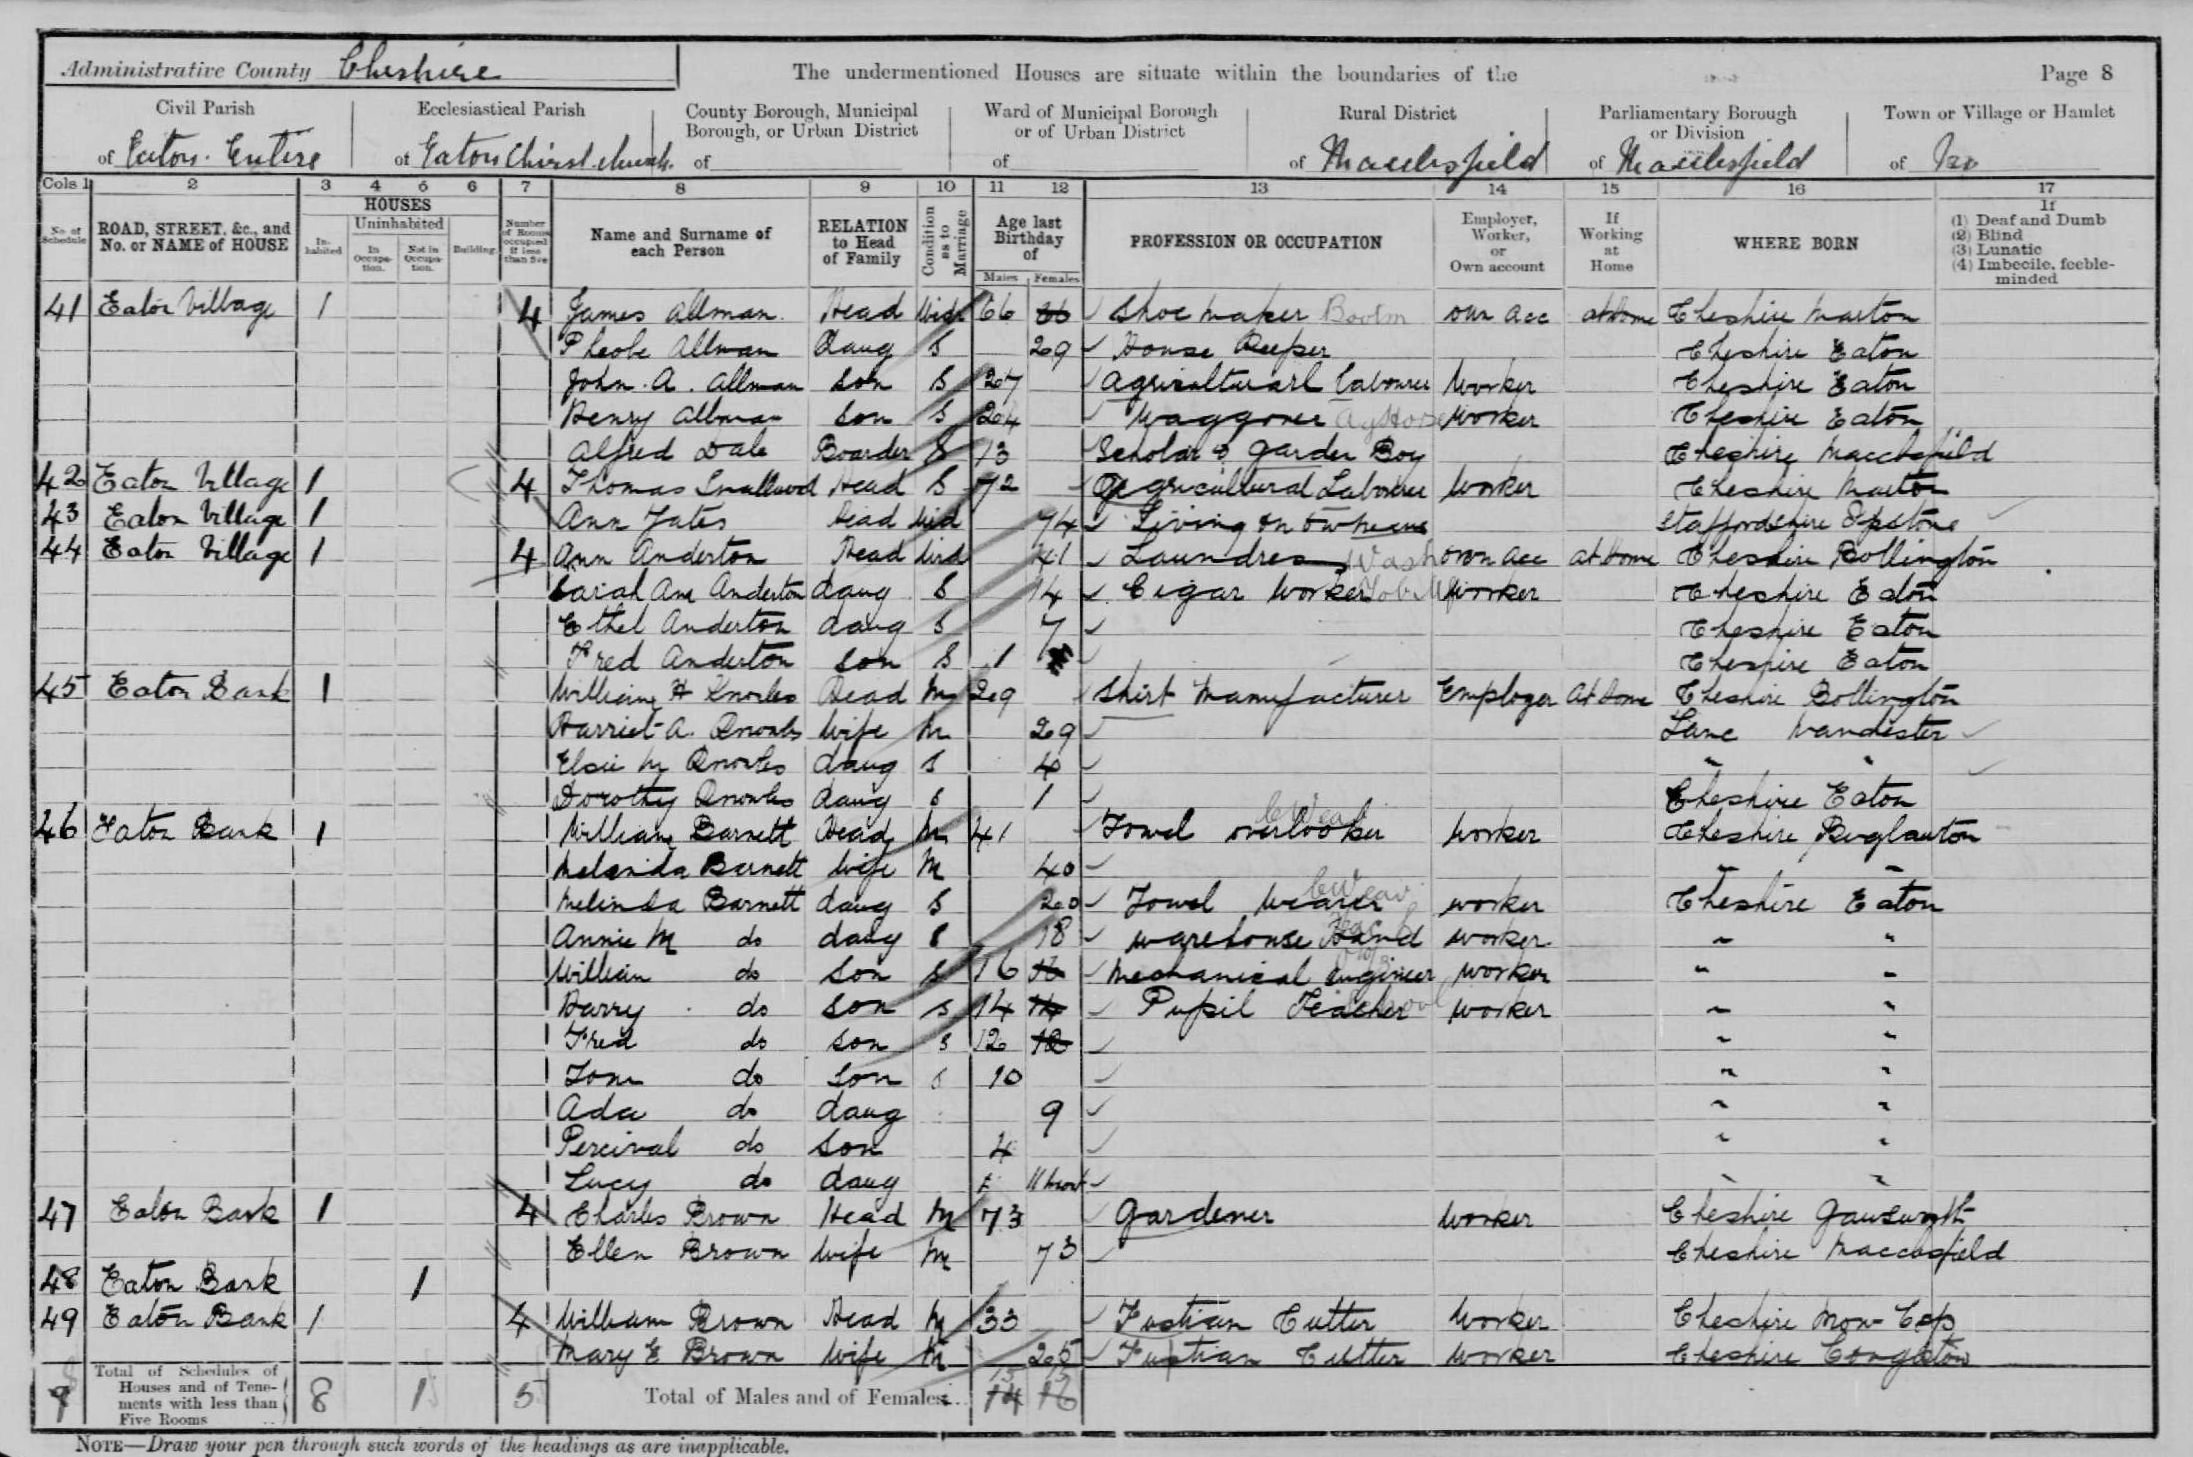 Administrative County Cheshire
The undermentioned Houses are situate within the boundaries of the
Page 8
Civil Parish
of Eaton. Entire
Ecclesiastical Parish
of Eaton Christ church.
County Borough, Municipal
Borough, or Urban District
of
Ward of Municipal Borough
or of Urban District
of
Rural District
of Macclesfield
Parliamentary Borough
or Division
of Macclesfield
Town or Village or Hamlet
of
Cols 1 2 3 4 5 6 7 8 9 10 11 12 13 14 15 16 17
No. of Schedule
ROAD, STREET, &c., and No. or NAME of HOUSE
HOUSES
In-habited
Uninhabited
In Occupa-tion.
Not in Occupa-tion.
Building
Number of Rooms occupied if less than five
Name and Surname of each Person
RELATION to Head of Family
Condition as to Marriage
Age last Birthday of
Males Females
PROFESSION OR OCCUPATION
Employer, Worker, or Own account
If Working at Home
WHERE BORN
If
(1) Deaf and Dumb
(2) Blind
(3) Lunatic
(4) Imbecile, feeble-minded
41 Eaton Village 1 4 James Allman. Head Wid 66 66 Shoe maker Bootm own acc at Home Cheshire Marton
Pheobe Allman Daug S 29 House Keeper Cheshire Eaton
John. A. Allman son S 27 Agriculturarl Labourer Worker Cheshire Eaton
Henry Allman son S 24 Waggoner Ag Horse Worker Cheshire Eaton
Alfred Dale Boarder S 13 Scholar & Garden Boy Cheshire Macclesfield
42 Eaton Village 1 4 Thomas Smallwood Head S 72 Agricultural Labourer Worker Cheshire Marton
43 Eaton Village 1 Ann Yates Head Wid 74 Living on own means Staffordshire Ipstone
44 Eaton Village 1 4 Ann Anderton Head Wid 41 Laundress Wash own acc at Home Cheshire Bollington
Sarah Ann Anderton daug S 14 Cigar Worker Tob Mf Worker Cheshire Eaton
Ethel Anderton daug S 7 Cheshire Eaton
Fred Anderton son S 1 Cheshire Eaton
45 Eaton Bank 1 William H Knowles Head M 29 Shirt Manufacturer Employer At Home Cheshire Bollington
Harriet A. Knowles Wife M 29 Lanc Manchester
Elsie M Knowles daug S 4 " "
Dorothy Knowles daug S 1 Cheshire Eaton
46 Eaton Bank 1 William Barnett Head M 41 Towel overlooker C Weav Worker Cheshire Buglawton
Melinda Barnett Wife M 40 " "
Melinda Barnett daug S 20 Towel Weaver C Weav worker Cheshire Eaton
Annie M do daug S 18 warehouse Hand worker " "
William do Son S 16 16 Mechanical engineer worker " "
Harry do son S 14 14 Pupil Teacher School worker " "
Fred do son S 12 12 " "
Tom do son S 10 " "
Ada do daug 9 " "
Percival do Son 4 " "
Lucy do daug 11 mont " "
47 Eaton Bank 1 4 Charles Brown Head M 73 Gardener Worker Cheshire Gawsworth
Ellen Brown Wife M 73 Cheshire Macclesfield
48 Eaton Bank 1
49 Eaton Bank 1 4 William Brown Head M 33 Fustian Cutter Worker Cheshire Mow Cop
Mary E Brown Wife M 25 Fustian Cutter Worker Cheshire Congleton
9 Total of Schedules of Houses and of Tene-ments with less than Five Rooms .. 8 1 5 Total of Males and of Females... 15 14 15 16
NOTE—Draw your pen through such words of the headings as are inapplicable.